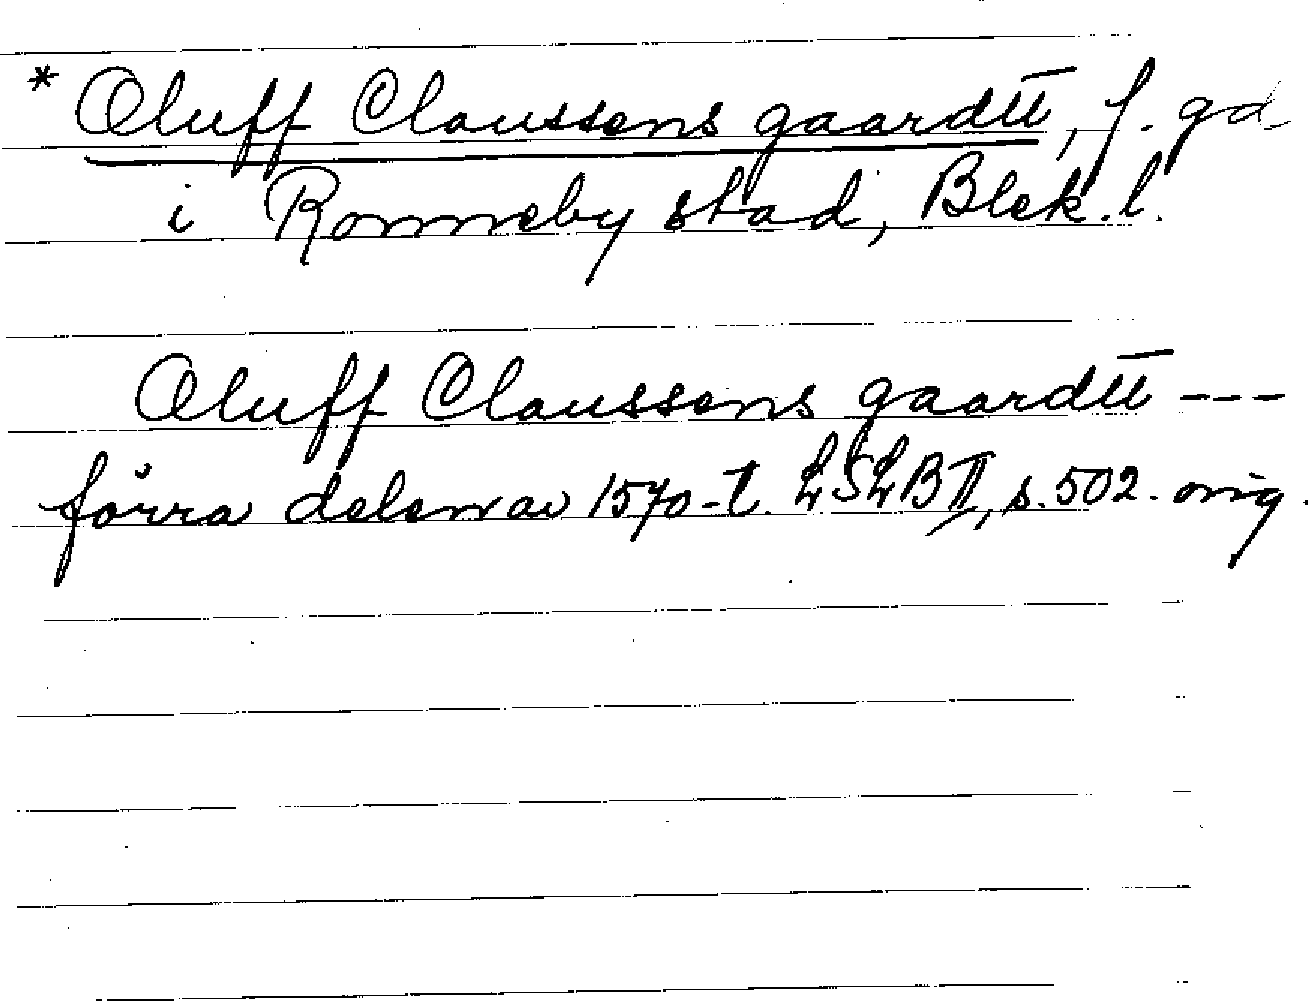 * Oluff Claussens gaardtt, f. gd.
i Ronneby stad, Blek. l.
Oluff Claussens gaardtt ---
förra delen av 1570-t. LSLB II, s. 502. orig.